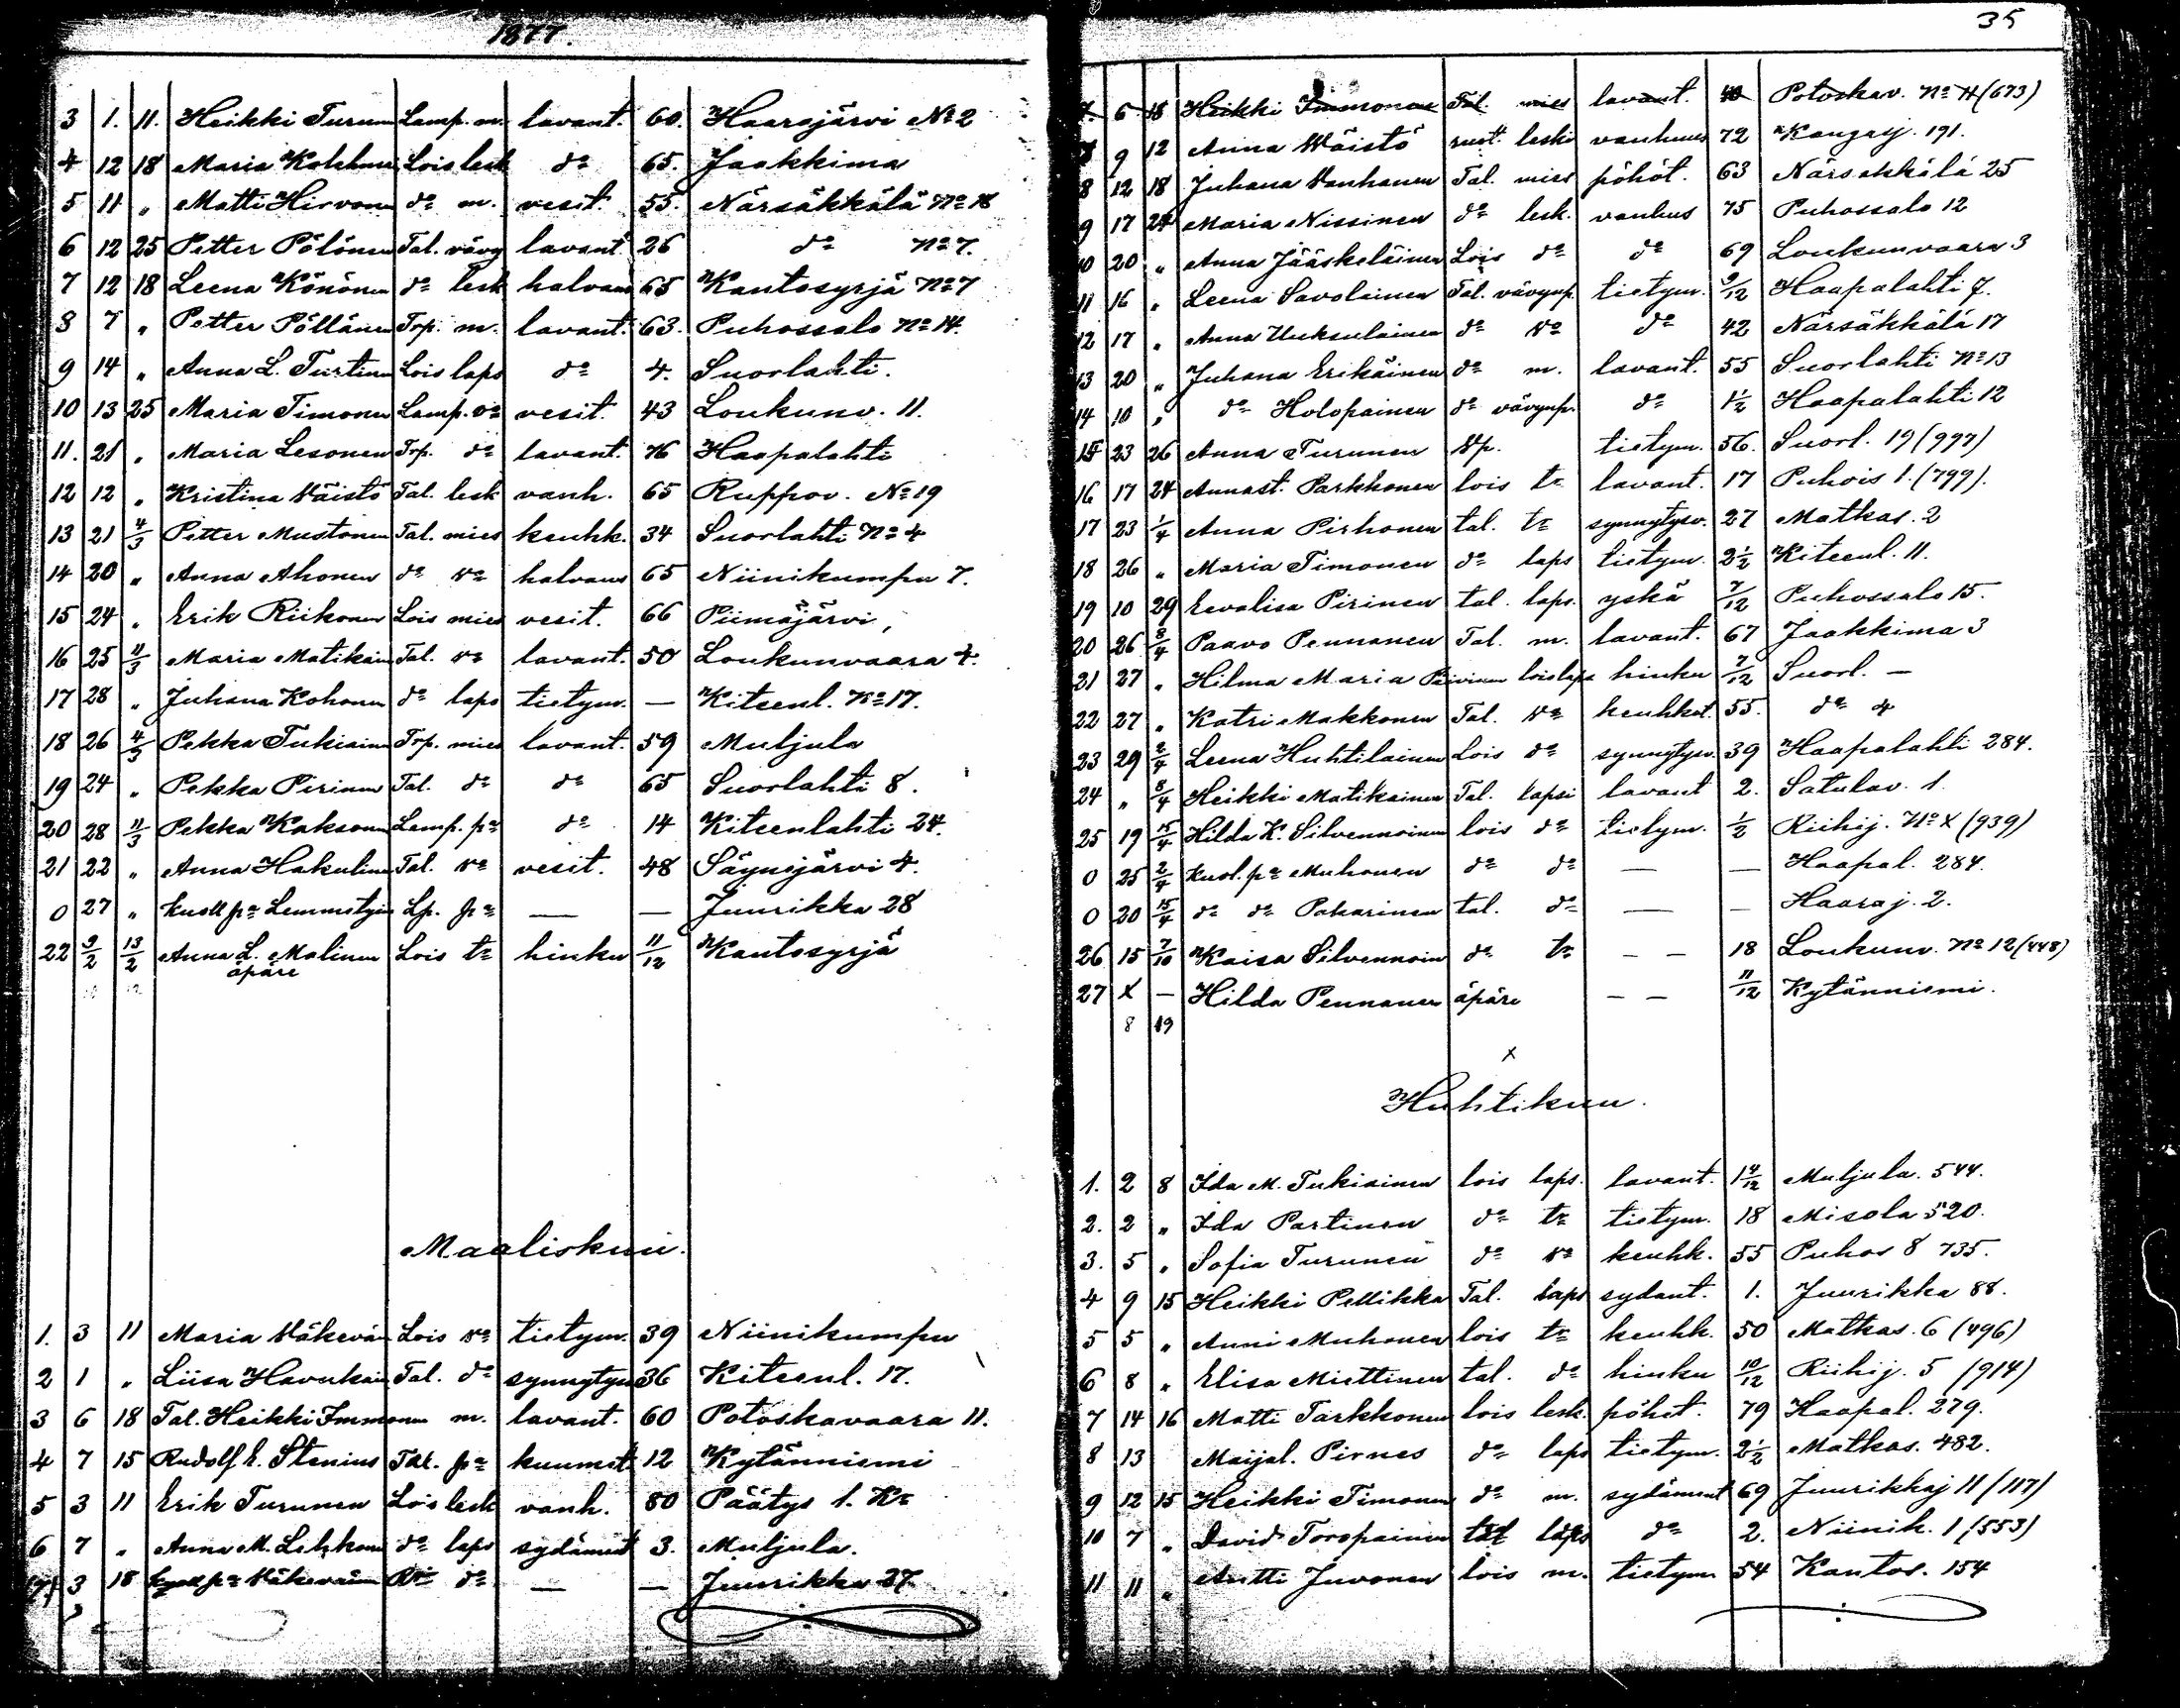 1877.
3 1. 11. Heikki Turun Lamp. m. lavant. 60. Haarajärvi No 2
4 12 18 Maria Kokkon Lois lesk do 65. Jaakkima
5 11 " Matti Hirvon do m. vesit. 55. Närsäkkälä No 18
6 12 25 Petter Pölönen Tal. vävy lavant. 26 do No 7.
7 12 18 Leena Könönen do lesk halvaus 65 Kantosyrjä No 7
8 7 " Petter Pöllänen Trp. m. lavant. 63. Puhossalo No 14.
9 14 " Anna L. Turtin Lois laps do 4. Suorlahti.
10 13 25 Maria Timonen Lamp. va vesit. 43 Loukunv. 11.
11. 21 " Maria Lesonen Trp. do lavant. 76 Haapalahti
12 12 " Kristina Väistö Tal. lesk vanh. 65 Ruppov. No 19
13 21 4/3 Petter Mustonen Tal. mies keuhk. 34 Suorlahti No 4
14 20 " Anna Ahonen do va halvaus 65 Niinikumpu 7.
15 24 " Erik Riikonen Lois mies vesit. 66 Piimäjärvi,
16 25 11/3 Maria Matikain Tal. va lavant. 50 Loukunvaara 4.
17 28 " Juhana Kohonen do laps tietym. — Kiteenl. No 17.
18 26 4/3 Pekka Tukiain Trp. mies lavant. 59 Muljula
19 24 " Pekka Pirinen Tal. do do 65 Suorlahti 8.
20 28 11/3 Pekka Kaksonen Lamp. pa do 14 Kiteenlahti 24.
21 22 " Anna Hakulin Tal. va vesit. 48 Säynejärvi 4.
0 27 " kuoll pa Lemmetyin Lp. pa — — Juurikka 28
22 9/2 13/2 Anna L. Malinen Lois tr hinku 11/12 Kantosyrjä
äpäre
Maaliskuu.
1. 3 11 Maria Väkevän Lois va tietym. 39 Niinikumpu
2 1 " Liisa Havukain Tal. do synnytys 36 Kiteenl. 17.
3 6 18 Tal. Heikki Immonen m. lavant. 60 Potoskavaara 11.
4 7 15 Rudolf E. Stenius Tal. pa kuumet 12 Kytänniemi
5 3 11 Erik Turunen Lois lesk vanh. 80 Päätys 1. Kr
6 7 " Anna M. Lehkon do laps sydämest 3. Muljula.
3 18 kuoll pa Väkeväin do — — Juurikka 27.
35
7. 6 18 Heikki Immonen Tal. mies lavant. Potoskav. No 11 (673)
9 12 Anna Väistö rust. leski vanhuus 72 Kangasj. 191.
8 12 18 Juhana Vanhanen Tal. mies pöhöt. 63 Närsäkkälä 25
9 17 24 Maria Nissinen do lesk. vanhus 75 Puhossalo 12
10 20 " Anna Jääskeläinen Lois do do 69 Loukunvaara 3
11 16 " Leena Savolainen Tal. vävynp. tietym. 9/12 Haapalahti 7.
12 17 " Anna Uuksulainen do va do 42 Närsäkkälä 17
13 20 " Juhana Erikäinen do m. lavant. 55 Suorlahti No 13
14 10 " do Holopainen do vävynp. do 1½ Haapalahti 12
15 23 26 Anna Turunen vp. tietym. 56. Suorl. 19 (997)
16 17 24 Annast. Parkkonen lois tr lavant. 17 Puhois 1. (799).
17 23 1/4 Anna Pirhonen tal. tr synnytysv. 27 Matkas. 2
18 26 " Maria Timonen do laps tietym. 2½ Kiteenl. 11.
19 10 29 Eevaliisa Pirinen tal. laps. yskä 7/12 Puhossalo 15.
20 26 8/4 Paavo Pennanen Tal. m. lavant. 67 Jaakkima 3
21 27 " Hilma Maria Päivinen loislaps hinku 7/12 Suorl. —
22 27 " Katri Makkonen Tal. va keuhkot. 55. do 4
23 29 2/4 Leena Huhtilainen Lois do synnytysv. 39 Haapalahti 284.
24 " 8/4 Heikki Matikainen Tal. lapsi lavant 2. Satulav. 1.
25 19 15/4 Hilda K. Silvennoinen lois do tietym. ½ Riihij. No X (939)
0 25 2/4 kuol. pa Muhonen do do — — Haapal. 284.
0 20 15/4 do do Pakarinen tal. do — — Haaraj. 2.
26 15 7/10 Kaisa Silvennoin do tr — — 18 Loukunv. No 12 (448)
27 X — Hilda Pennanen äpäre — — 11/12 Kytänniemi.
8 19
x
Huhtikuu.
1. 2 8 Ida M. Tukiainen lois laps. lavant. 1 4/12 Muljula. 544.
2. 2 " Ida Partinen do tr tietym. 18 Misola 520.
3. 5 " Sofia Turunen do va keuhk. 55 Puhos 8 735.
4 9 15 Heikki Pellikka Tal. laps sydänt. 1. Juurikka 88.
5 5 " Anni Muhonen lois tr keuhk. 50 Matkas. 6 (496)
6 8 " Elisa Miettinen tal. do hinku 10/12 Riihij. 5 (914)
7 14 16 Matti Tarkkonen lois lesk. pöhöt. 79 Haapal. 279.
8 13 Maijal. Pirnes do laps tietym. 2½ Matkas. 482.
9 12 15 Heikki Timonen do m. sydäment 69 Juurikkaj 11 (117)
10 7 " David Toropainen tal laps do 2. Niinik. 1 (553)
11 11 " Antti Juvonen lois m. tietym 54 Kantos. 154